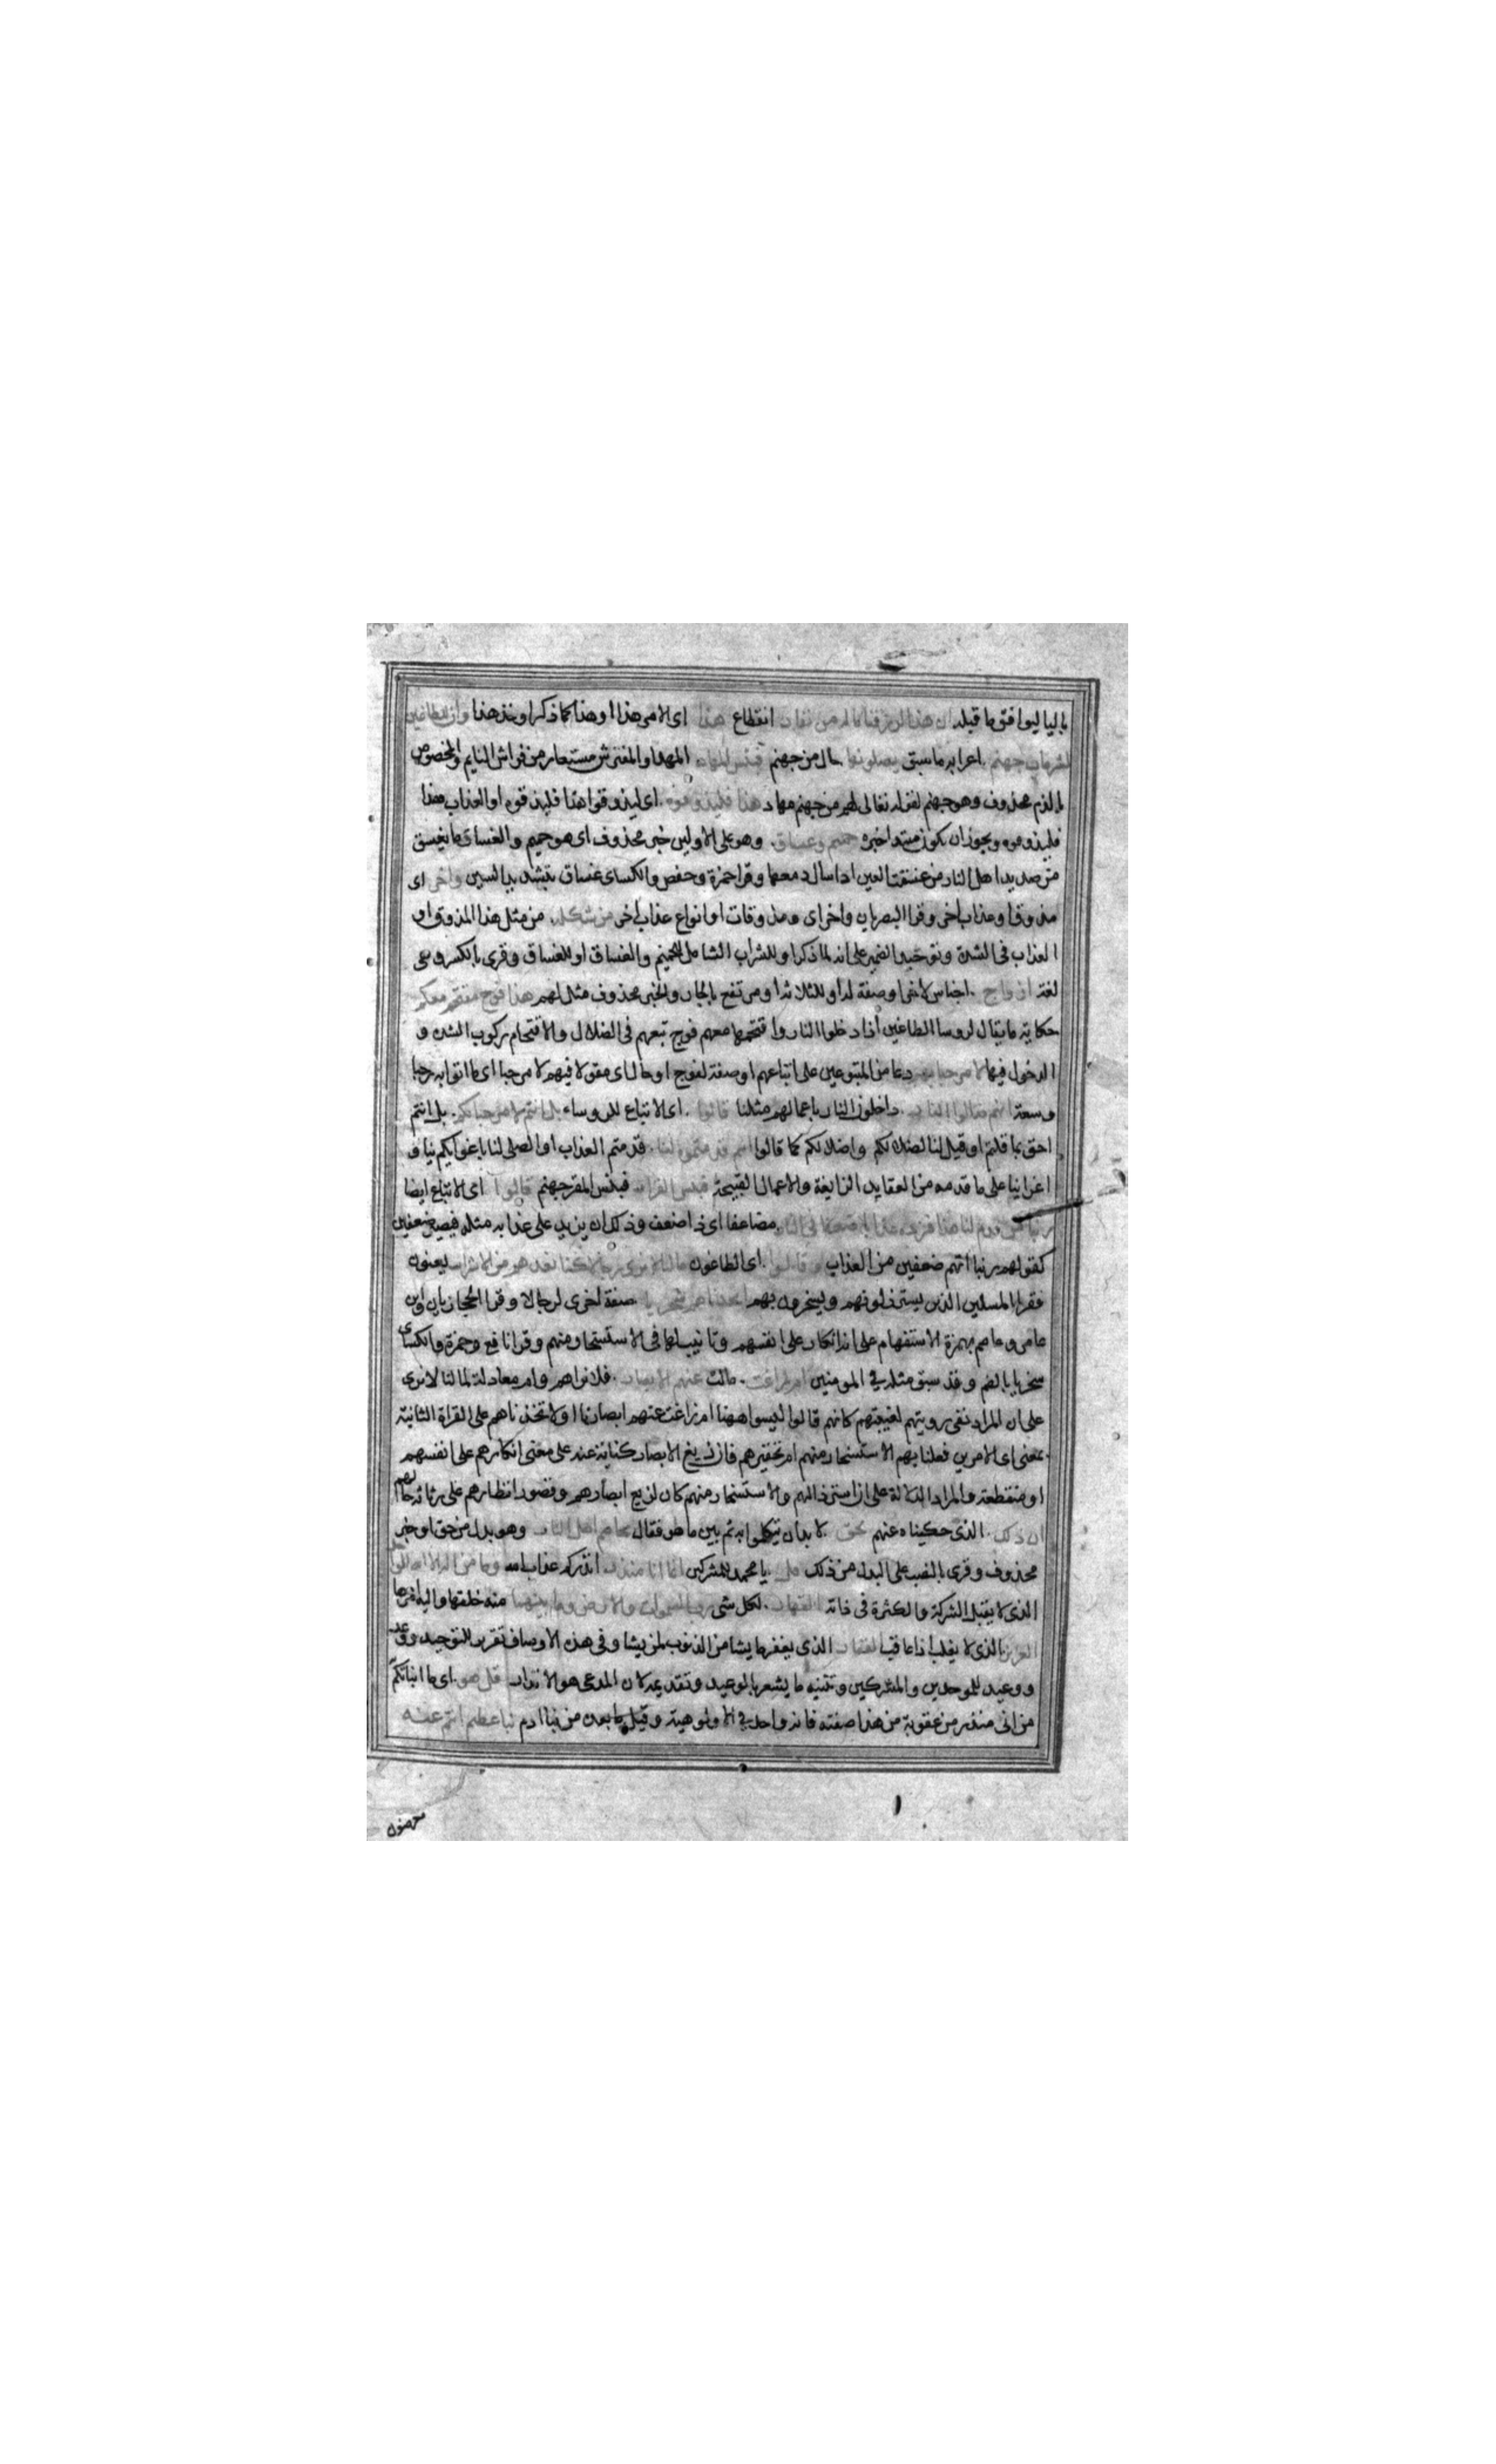 باليا ليوافق ما قبله ان هذا لرزقنا ماله من نفاد انقطاع هذا اى الامر هذا او هذا كما ذكر او خذ هذا وان للطاغين
لشر ماب جهنم اعرابه ما سبق يصلونها حال من جهنم فبئس المهاد المهد والمفترش مستعار من فراش النايم والمخصوص
بالذم محذوف وهو جهنم لقوله تعالى لهم من جهنم مهاد هذا فليذوقوه اى ليذوقوا هذا فليذوقوه او العذاب هذا
فليذوقوه ويجوز ان يكون مبتدا خبره حميم وغساق وهو على الاولين خبر محذوف اى هو حميم والغساق ما يغسق
من صديد اهل النار من غسقت العين اذا سال دمعها وقرا حمزة وحفص والكساى غساق بتشديد السين واخر اى
مذوق او عذاب اخر وقرا البصريان واخر اى ومذوقات او انواع عذاب اخر من شكله من مثل هذا المذوق او
العذاب فى الشدة وتوحيد الضمير على انه لما ذكر او للشراب الشامل للحميم والغساق او للغساق وقرى بالكسر وهى
لغة ازواج اجناس لاخر او صفة له او للثلاثة او مرتفع بالجار والخبر محذوف مثل لهم هذا فوج مقتحم معكم
حكاية ما يقال لروسا الطاغين اذا دخلوا النار واقتحمها معهم فوج تبعهم فى الضلال والاقتحام ركوب الشدة و
الدخول فيها لا مرحبا بهم دعا من المتبوعين على اتباعهم او صفة لفوج او حال اى مقولا فيهم لا مرحبا اى ما اتوا به رحبا
وسعة انهم صالوا النار داخلون النار باعمالهم مثلنا قالوا اى الاتباع للروساء بل انتم لا مرحبا بكم بل انتم
احق بما قلتم او قيل لنا لضلالكم واضلالكم كما قالوا انتم قدمتموه لنا قدمتم العذاب او الصلى لنا باغوايكم ايانا و
اغراينا على ما قدمه من العقايد الزايغة والاعمال القبيحة فبئس القرار فبئس المقر جهنم قالوا اى الاتباع ايضا
ربنا من قدم لنا هذا فزده عذابا ضعفا فى النار مضاعفا اى ذا ضعف وذلك ان يزيد على عذابه مثله فيصير ضعفين
كقولهم ربنا اتهم ضعفين من العذاب وقالوا اى الطاغون مالنا لا نرى رجالا كنا نعدهم من الاشرار يعنون
فقرا المسلمين الذين يسترذلونهم ويسخرون بهم اتخذناهم سخريا صفة اخرى لرجالا وقرا الحجازيان وابن
عامر وعاصم بهمزة الاستفهام على انه انكار على انفسهم وتانيب لها فى الاستسخار منهم وقرا نافع وحمزة والكساى
سخريا بالضم وقد سبق مثله فى المومنين ام زاغت مالت عنهم الابصار فلا نراهم وام معادلة لما لنا لا نرى
على ان المراد نفى رويتهم لغيبتهم كانهم قالوا ليسوا ههنا ام زاغت عنهم ابصارنا او لاتخذناهم على القراة الثانية
بمعنى اى الامرين فعلنا بهم الاستسخار منهم ام تحقيرهم فان زيغ الابصار كناية عنه على معنى انكارهم على انفسهم
او منقطعة والمراد الدلالة على ان استرذالهم والاستسخار منهم كان لزيغ ابصارهم وقصور انظارهم على رثاثة حالهم
ان ذلك الذى حكيناه عنهم لحق لا بد ان يتكلموا به ثم بين ما هو فقال تخاصم اهل النار وهو بدل من حق او خبر
محذوف وقرى بالنصب على البدل من ذلك قل يا محمد للمشركين انما انا منذر انذركم عذاب الله وما من اله الا الله الواحد
الذى لا يقبل الشركة والكثرة فى ذاته القهار لكل شى رب السموات والارض وما بينهما منه خلقها واليه امرها
العزيز الذى لا يغلب اذا عاقب الغفار الذى يغفر ما يشا من الذنوب لمن يشا وفى هذه الاوصاف تقرير للتوحيد ووعد
ووعيد للموحدين والمشركين وتثنيه ما يشعر بالوعيد وتقديمه لان المدعى هو الانذار قل هو اى ما انباتكم
من انى منذر من عقوبة من هذا صفته فانه واحد فى الالوهية وقيل ما بعده من نبا ادم نبا عظيم انتم عنه
معرضون